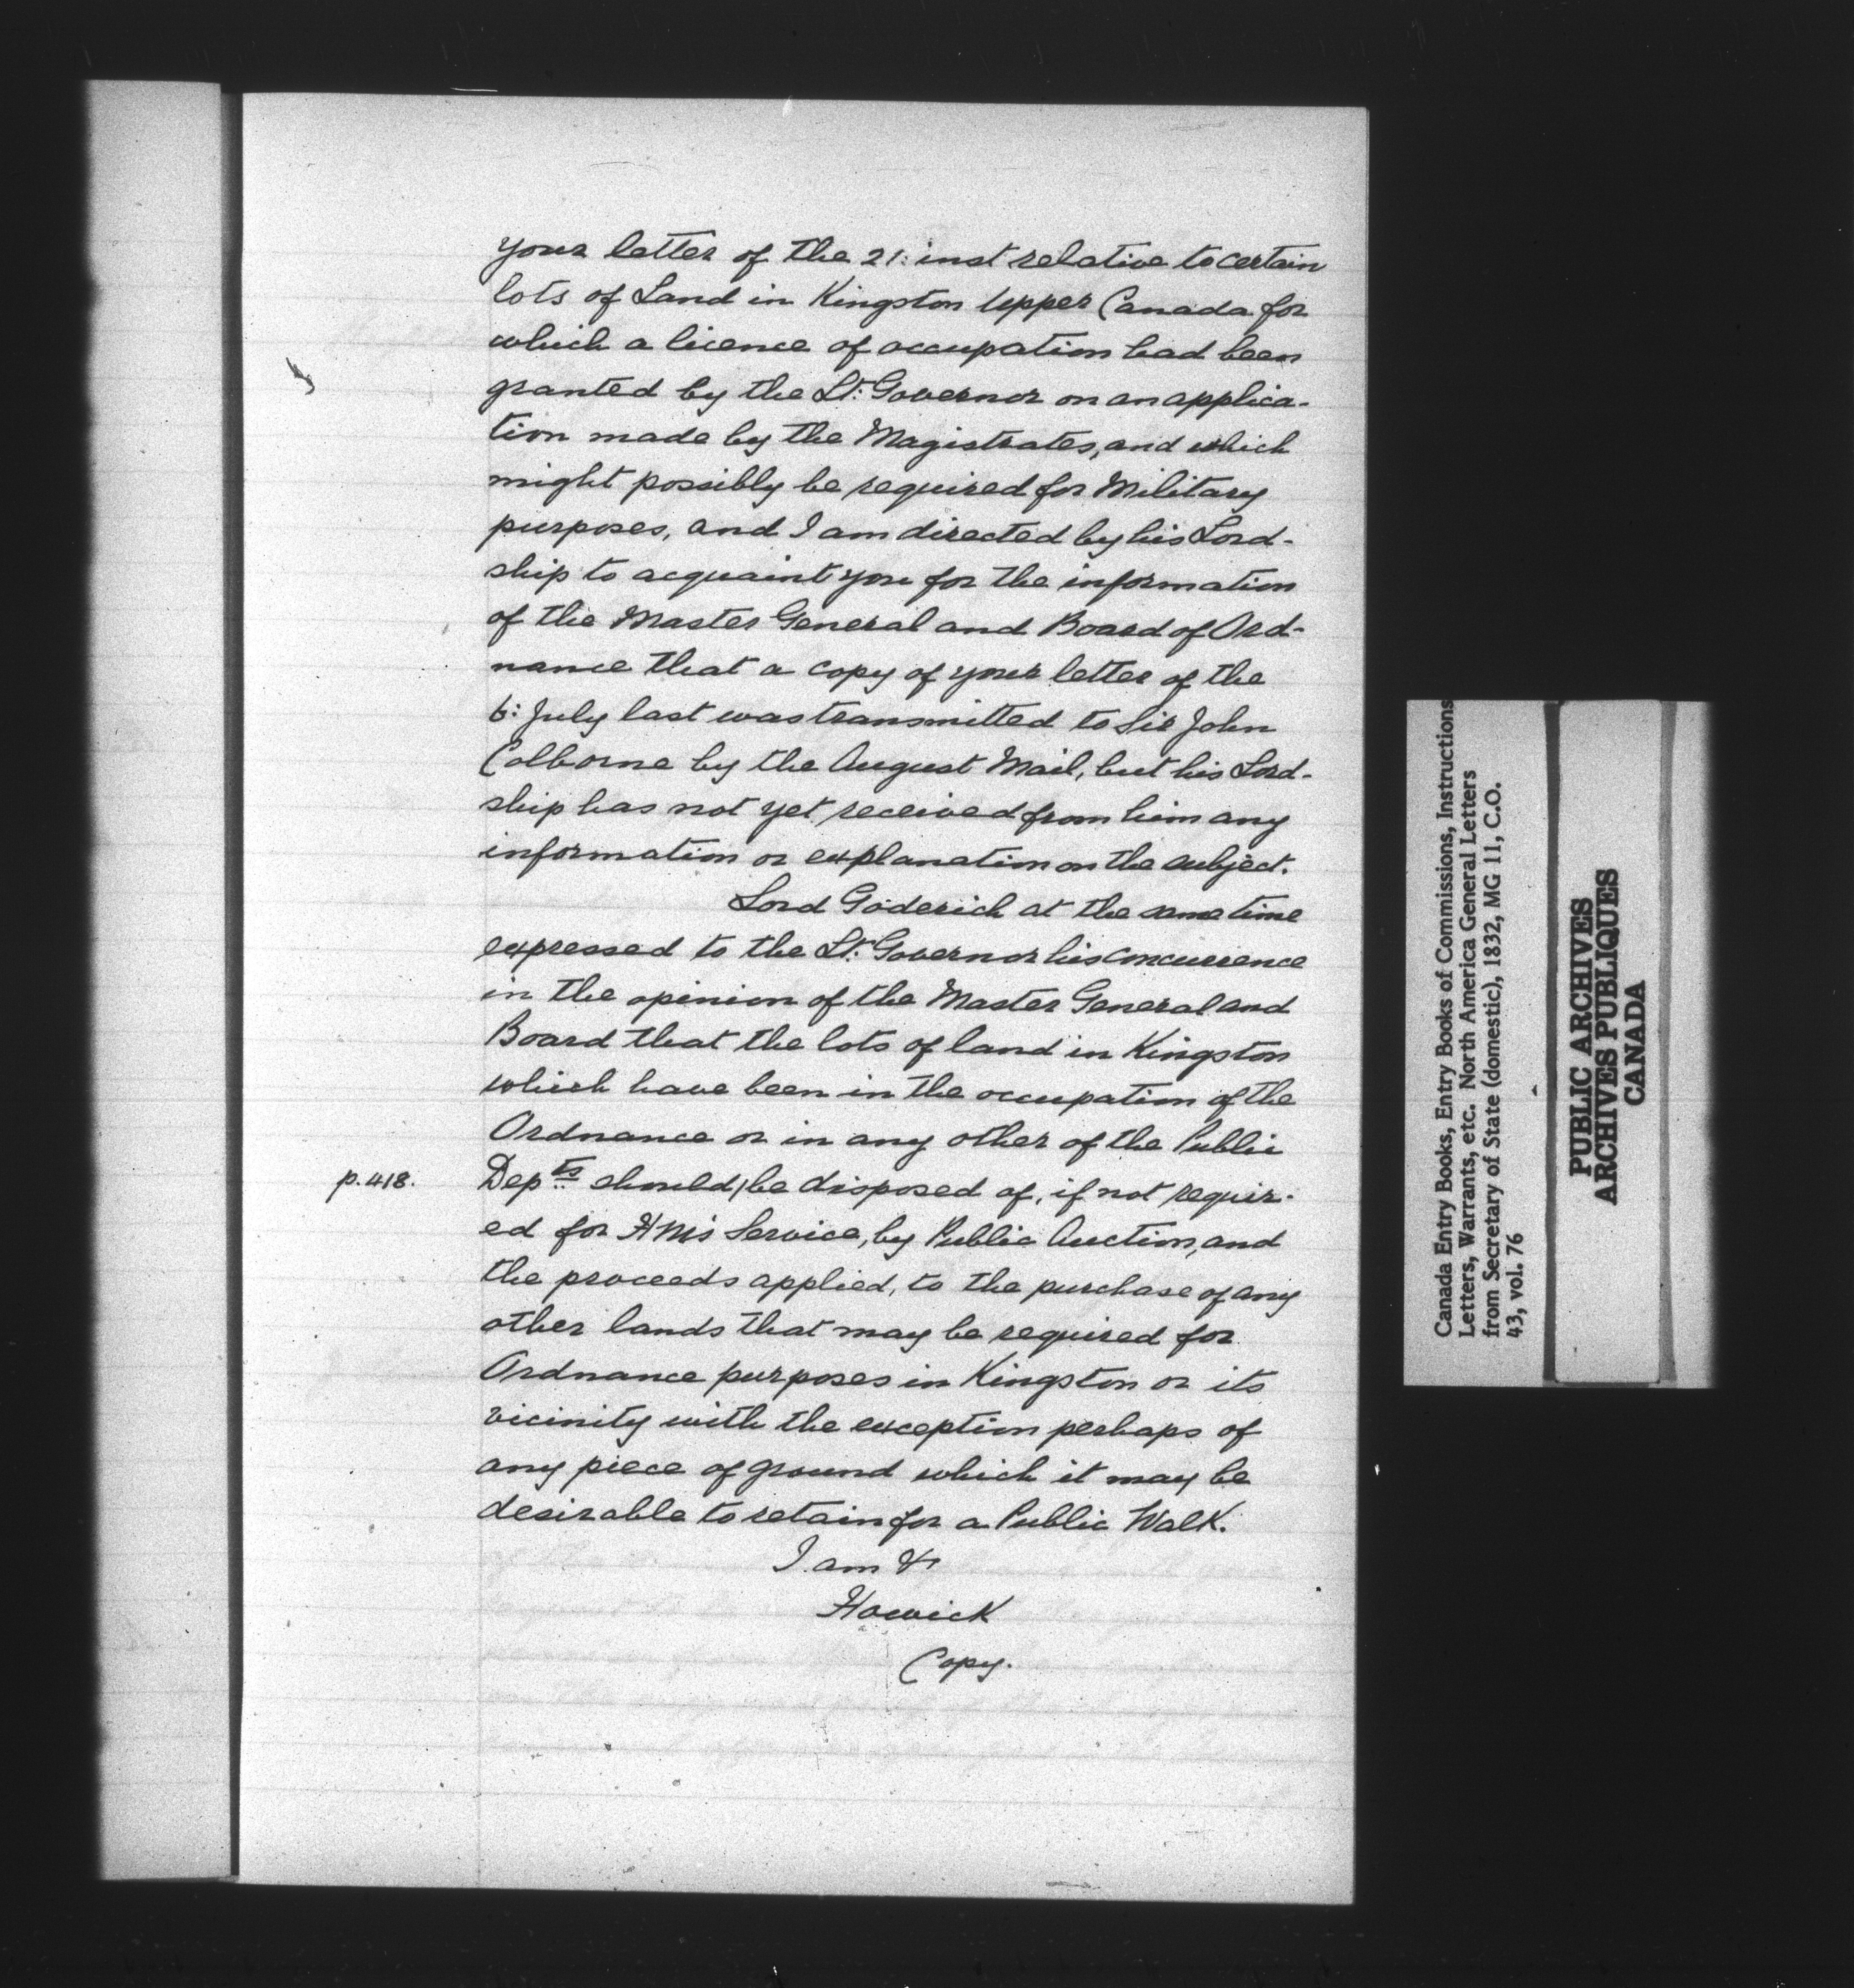 your letter of the 21: inst relative to certain
lots of Land in Kingston Upper Canada for
which a licence of occupation had been
granted by the Lt: Governor on an applica-
tion made by the Magistrates, and which
might possibly be required for Military
purposes, and I am directed by his Lord-
ship to acquaint you for the information
of the Master General and Board of Ord-
nance that a copy of your letter of the
6: July last was transmitted to Sir John
Colborne by the August Mail, but his Lord-
ship has not yet received from him any
information or explanation on the subject.
Lord Goderich at the same time
expressed to the Lt: Governor his concurrence
in the opinion of the Master General and
Board that the lots of land in Kingston
which have been in the occupation of the
Ordnance or in any other of the Public
p. 418. Depts should, be disposed of, if not requir-
ed for HM's Service, by Public Auction, and
the proceeds applied, to the purchase of any
other lands that may be required for
Ordnance purposes in Kingston or its
vicinity with the exception perhaps of
any piece of ground which it may be
desirable to retain for a Public Walk.
I am &
Howick
Copy.
Canada Entry Books, Entry Books of Commissions, Instructions
Letters, Warrants, etc. North America General Letters
from Secretary of State (domestic), 1832, MG 11, C.O.
43, vol. 76
PUBLIC ARCHIVES
ARCHIVES PUBLIQUES
CANADA